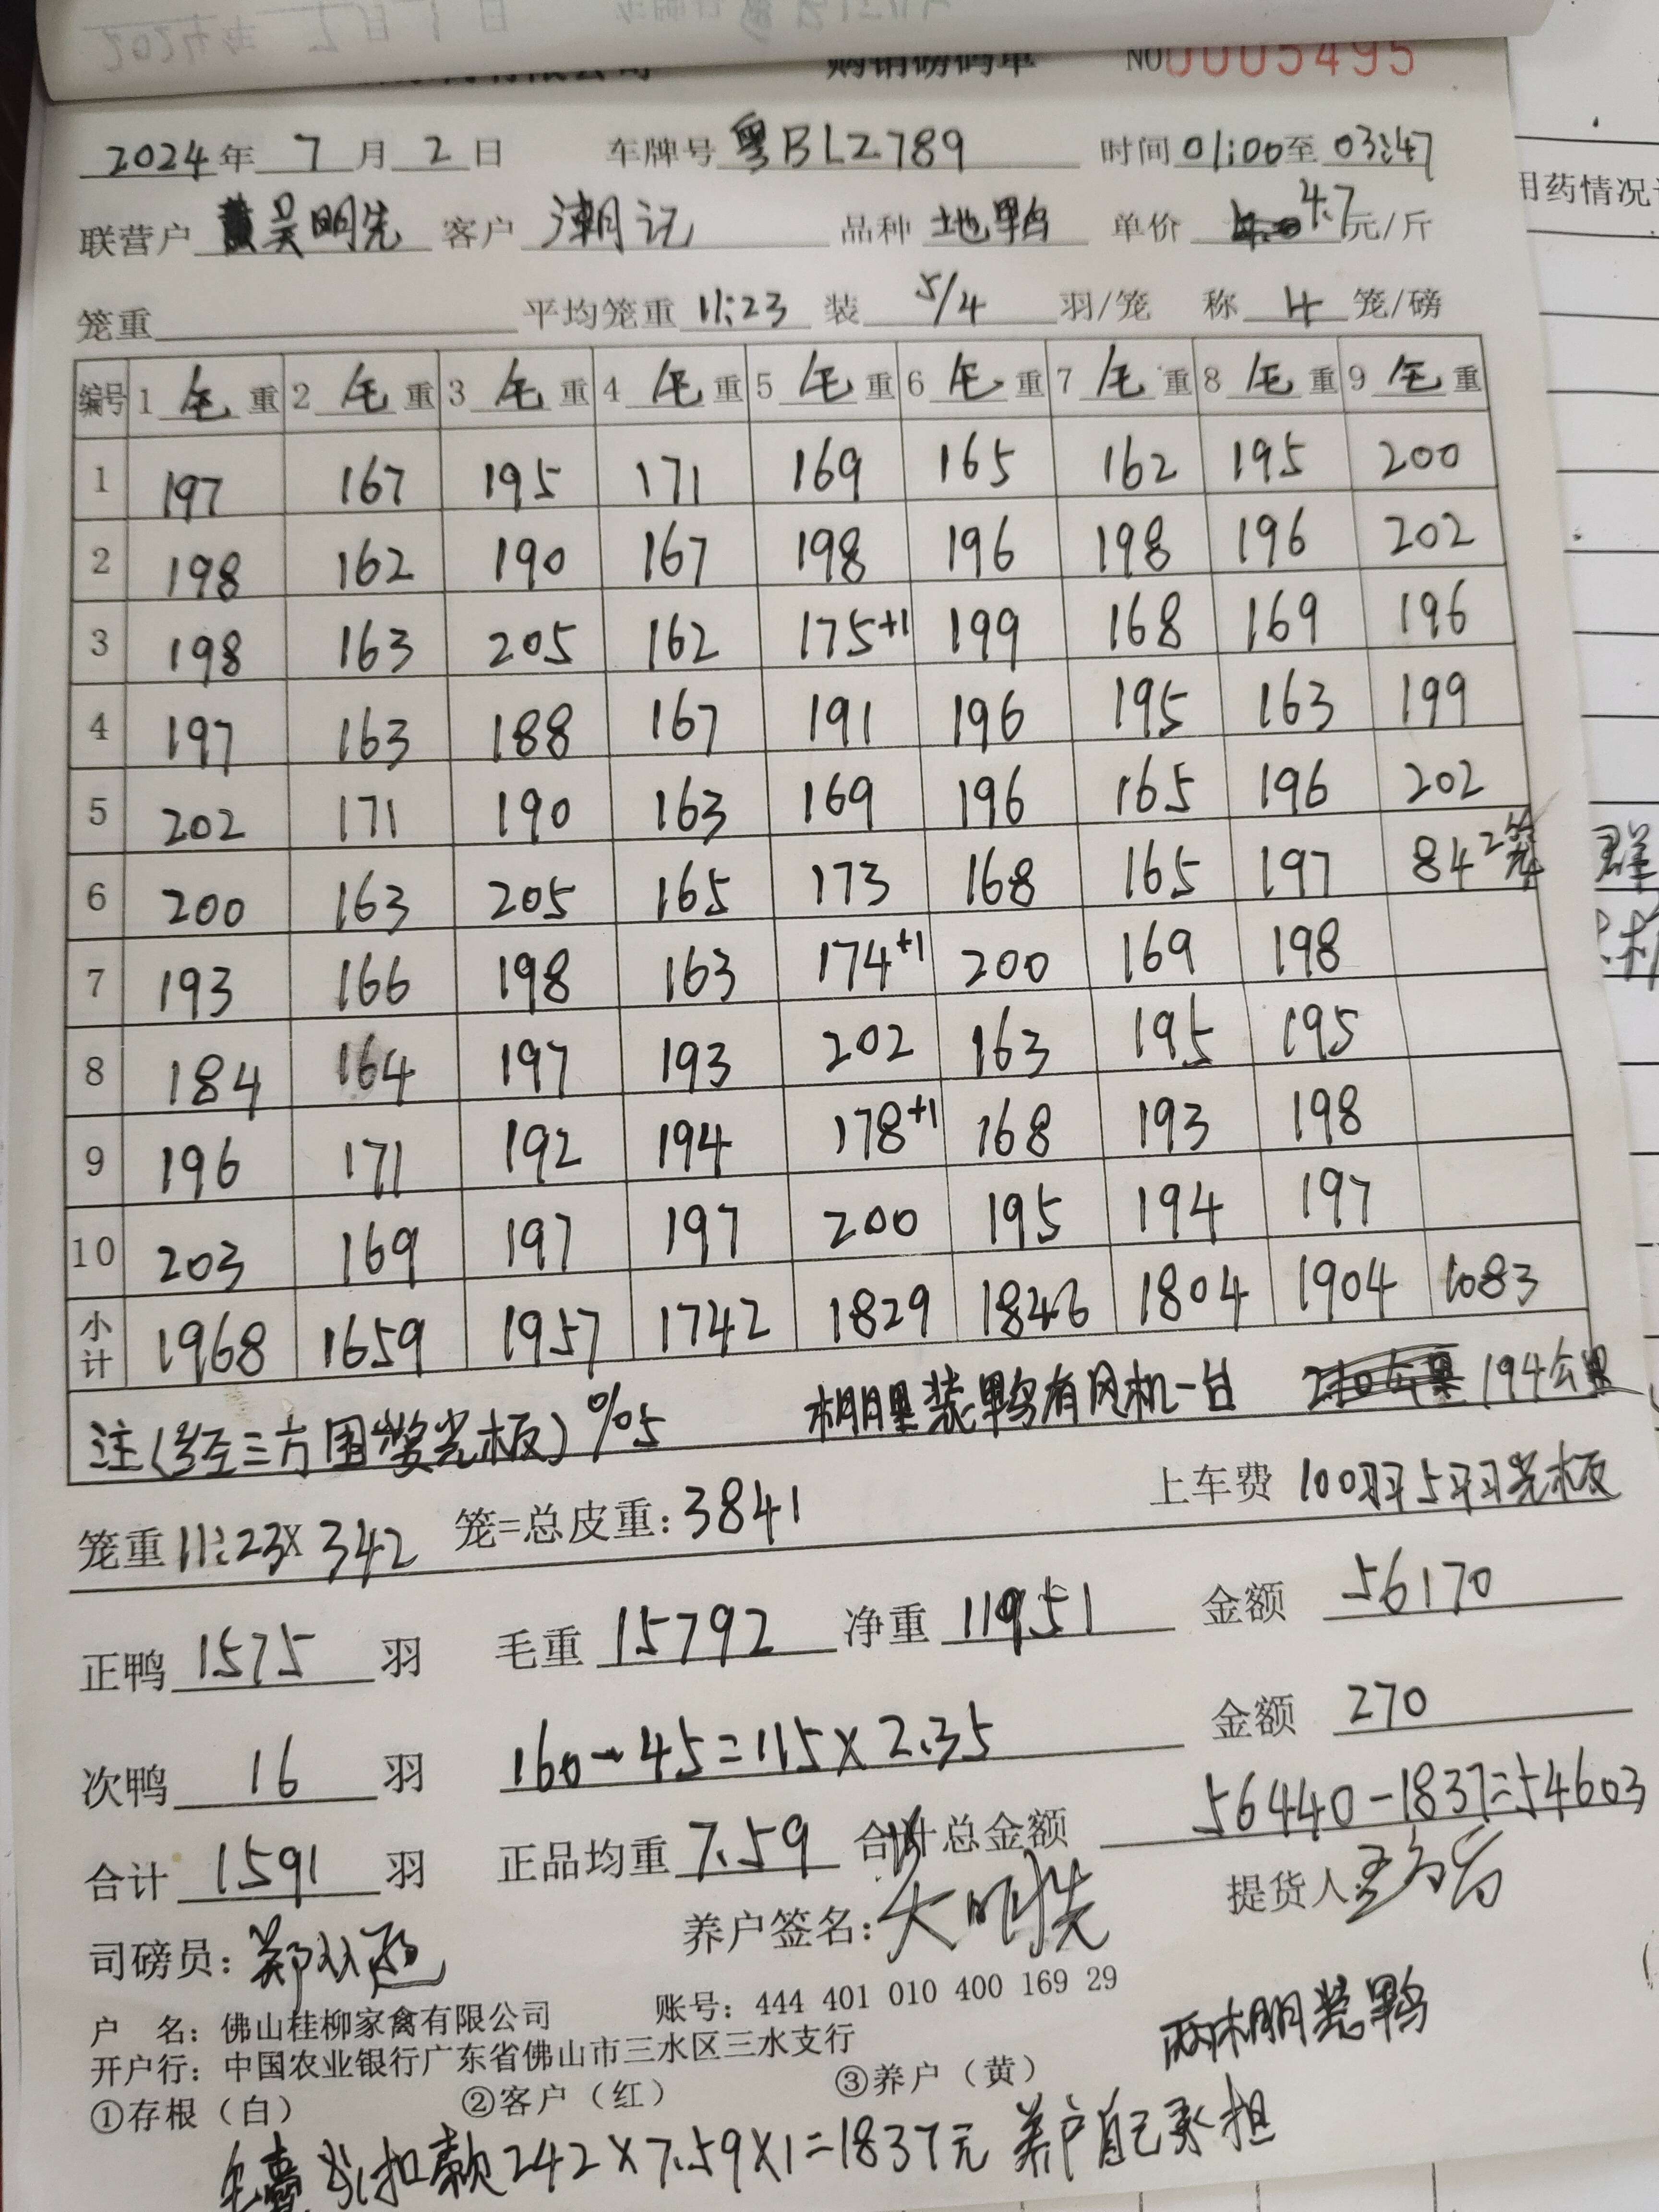 购销磅码单 NO 0005495
2024年 7月 2日 车牌号 粤BLZ789 时间 01:00至 03:47
联营户 吴明先 客户 潮记 品种 地鸭 单价 4.7元/斤
笼重 平均笼重 11:23 装 5/4 羽/笼 称 4 笼/磅
编号 1 毛重 2 毛重 3 毛重 4 毛重 5 毛重 6 毛重 7 毛重 8 毛重 9 毛重
1 197 167 195 171 169 165 162 195 200
2 198 162 190 167 198 196 198 196 202
3 198 163 205 162 175+1 199 168 169 196
4 197 163 188 167 191 196 195 163 199
5 202 171 190 163 169 196 165 196 202
6 200 163 205 165 173 168 165 197 84 2笼
7 193 166 198 163 174+1 200 169 198
8 184 164 197 193 202 163 195 195
9 196 171 192 194 178+1 168 193 198
10 203 169 197 197 200 195 194 197
小计 1968 1659 1957 1742 1829 1846 1804 1904 1083
注 %5 棚里装鸭有风机一台 194公里
笼重 11:23X 342 笼=总皮重: 3841 上车费 100羽5羽光板
正鸭 1575 羽 毛重 15792 净重 11951 金额 56170
次鸭 16 羽 160-45=115×2.35 金额 270
合计 1591 羽 正品均重 7.59 合计总金额 56440-1837=54603
司磅员: 养户签名: 提货人
户 名: 佛山桂柳家禽有限公司 账号: 444 401 010 400 169 29
开户行: 中国农业银行广东省佛山市三水区三水支行
两棚装鸭
①存根（白） ②客户（红） ③养户（黄）
扣款242×7.59×1=1837元 养户自己承担
用药情况
群